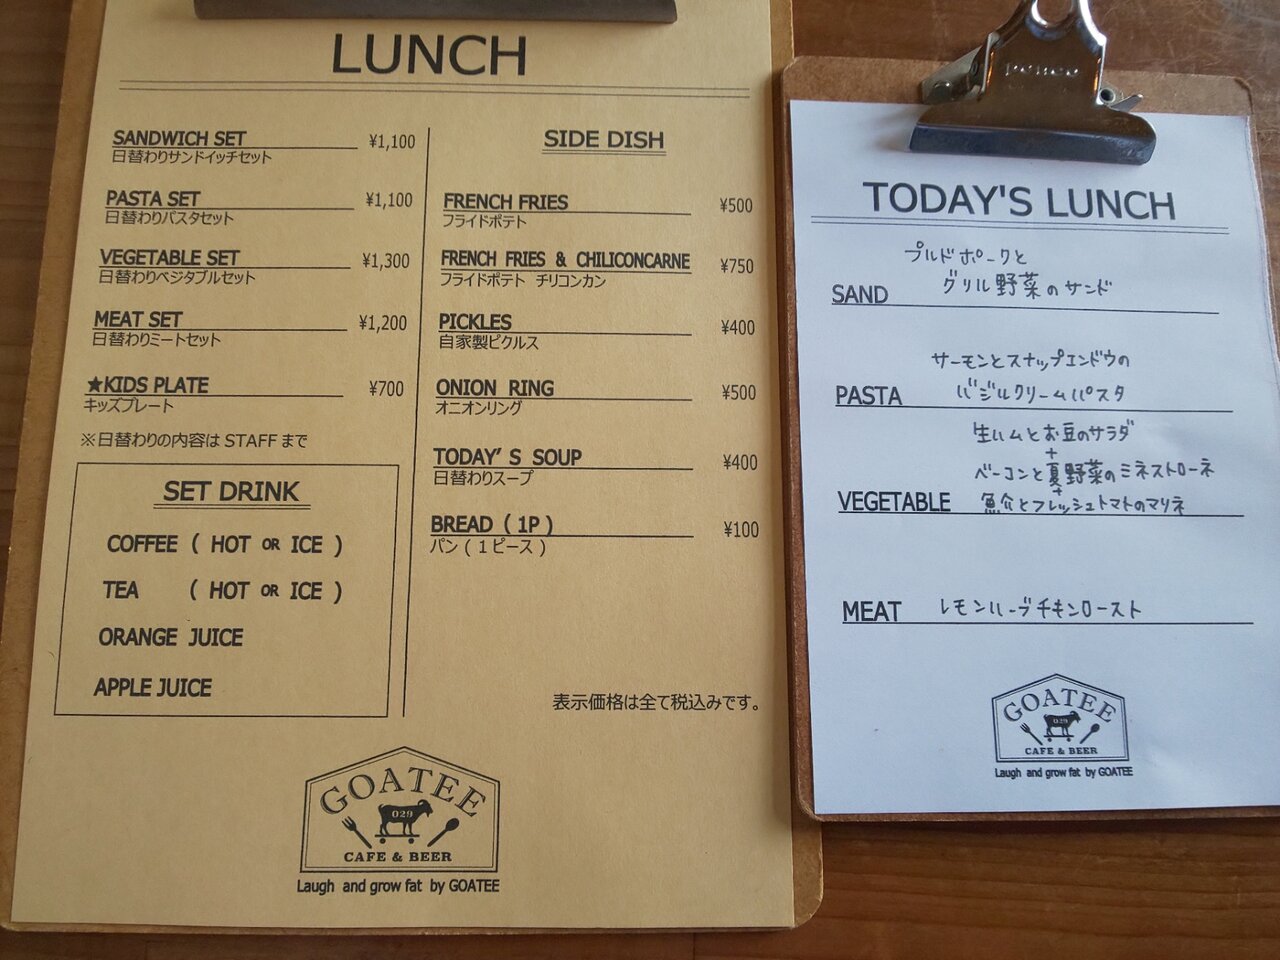 LUNCH
SANDWICH SET ¥1,100
日替わりサンドイッチセット
PASTA SET ¥1,100
日替わりパスタセット
VEGETABLE SET ¥1,300
日替わりベジタブルセット
MEAT SET ¥1,200
日替わりミートセット
★KIDS PLATE ¥700
キッズプレート
※日替わりの内容は STAFF まで
SET DRINK
COFFEE ( HOT OR ICE )
TEA ( HOT OR ICE )
ORANGE JUICE
APPLE JUICE
SIDE DISH
FRENCH FRIES ¥500
フライドポテト
FRENCH FRIES & CHILICONCARNE ¥750
フライドポテト チリコンカン
PICKLES ¥400
自家製ピクルス
ONION RING ¥500
オニオンリング
TODAY' S SOUP ¥400
日替わりスープ
BREAD ( 1P ) ¥100
パン ( 1 ピース )
表示価格は全て税込みです。
GOATEE
029
CAFE & BEER
Laugh and grow fat by GOATEE
penco
TODAY'S LUNCH
プルドポークと
SAND グリル野菜のサンド
サーモンとスナップエンドウの
PASTA バジルクリームパスタ
生ハムとお豆のサラダ
+
ベーコンと夏野菜のミネストローネ
+
VEGETABLE 魚介とフレッシュトマトのマリネ
MEAT レモンハーブチキンロースト
GOATEE
029
CAFE & BEER
Laugh and grow fat by GOATEE